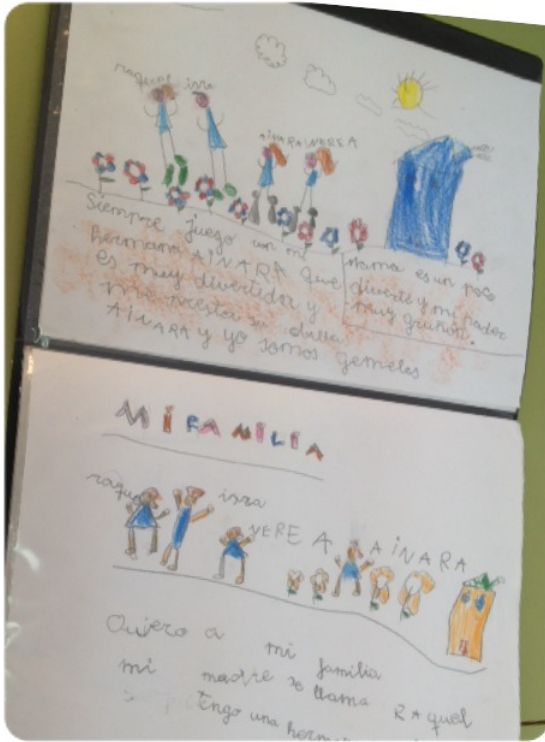 raquel isra
AINARA NEREA
Siempre juego con mi
hermana AINARA que
es muy divertida y
me presta su
AINARA y yo somos gemelas
Mama es un poco
diverte y mi padre
muy gruñon.
MI FAMILIA
raquel isra
NEREA AINARA
Quiero a mi familia
mi madre se llama RAquel
Tengo una